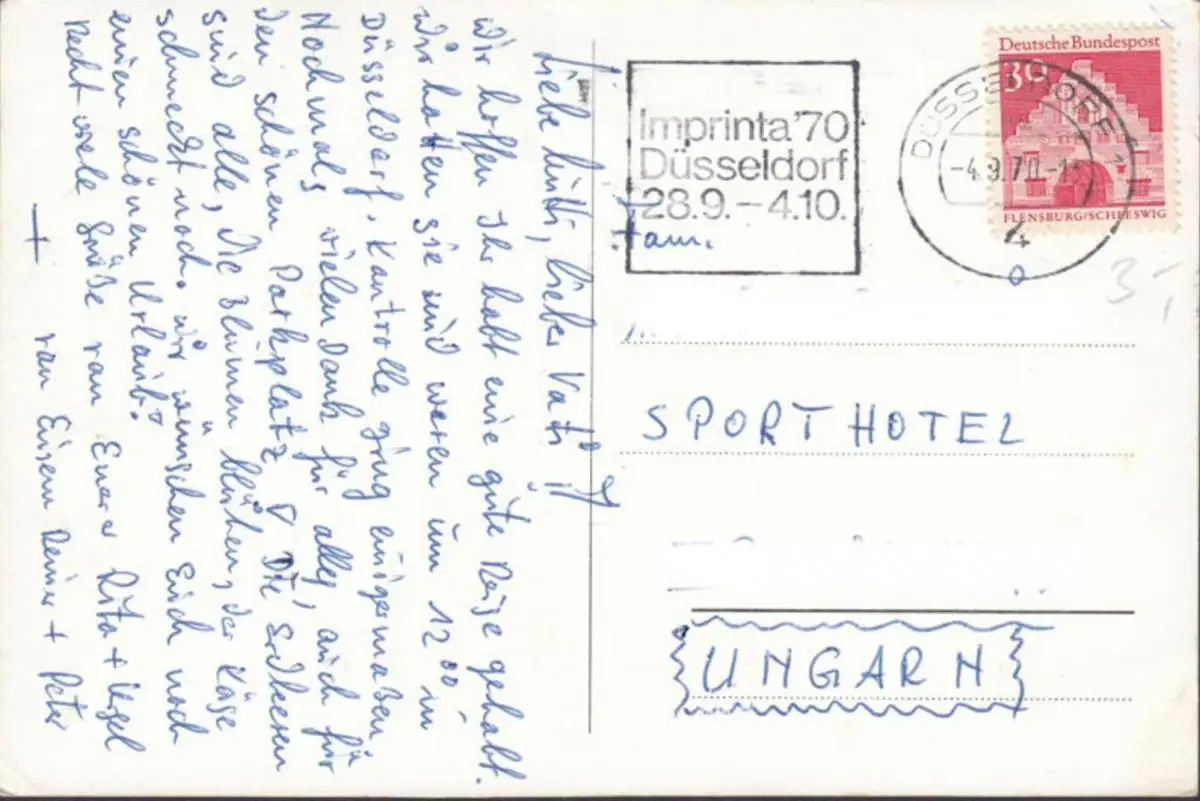 Liebe Mutti, lieber Vati!
Wir hoffen Ihr habt eine gute Reise gehabt.
Wir hatten sie und waren um 12⁰⁰ in
Düsseldorf. Kontrolle ging einigermaßen
Nochmals vielen Dank für alles, auch für
den schönen Parkplatz! Die Erdbeeren
sind alle, Die Blumen blühen, der Käse
schmeckt noch. Wir wünschen Euch noch
einen schönen Urlaub!
Recht viele Grüße von Eurer Rita +
+ von Eurem Reiner + Peter
Imprinta '70
Düsseldorf
28.9. – 4.10.
Fam.
DÜSSELDORF 1
-4.9.70-
4
o
Deutsche Bundespost
30
FLENSBURG/SCHLESWIG
3,-
SPORTHOTEL
UNGARN